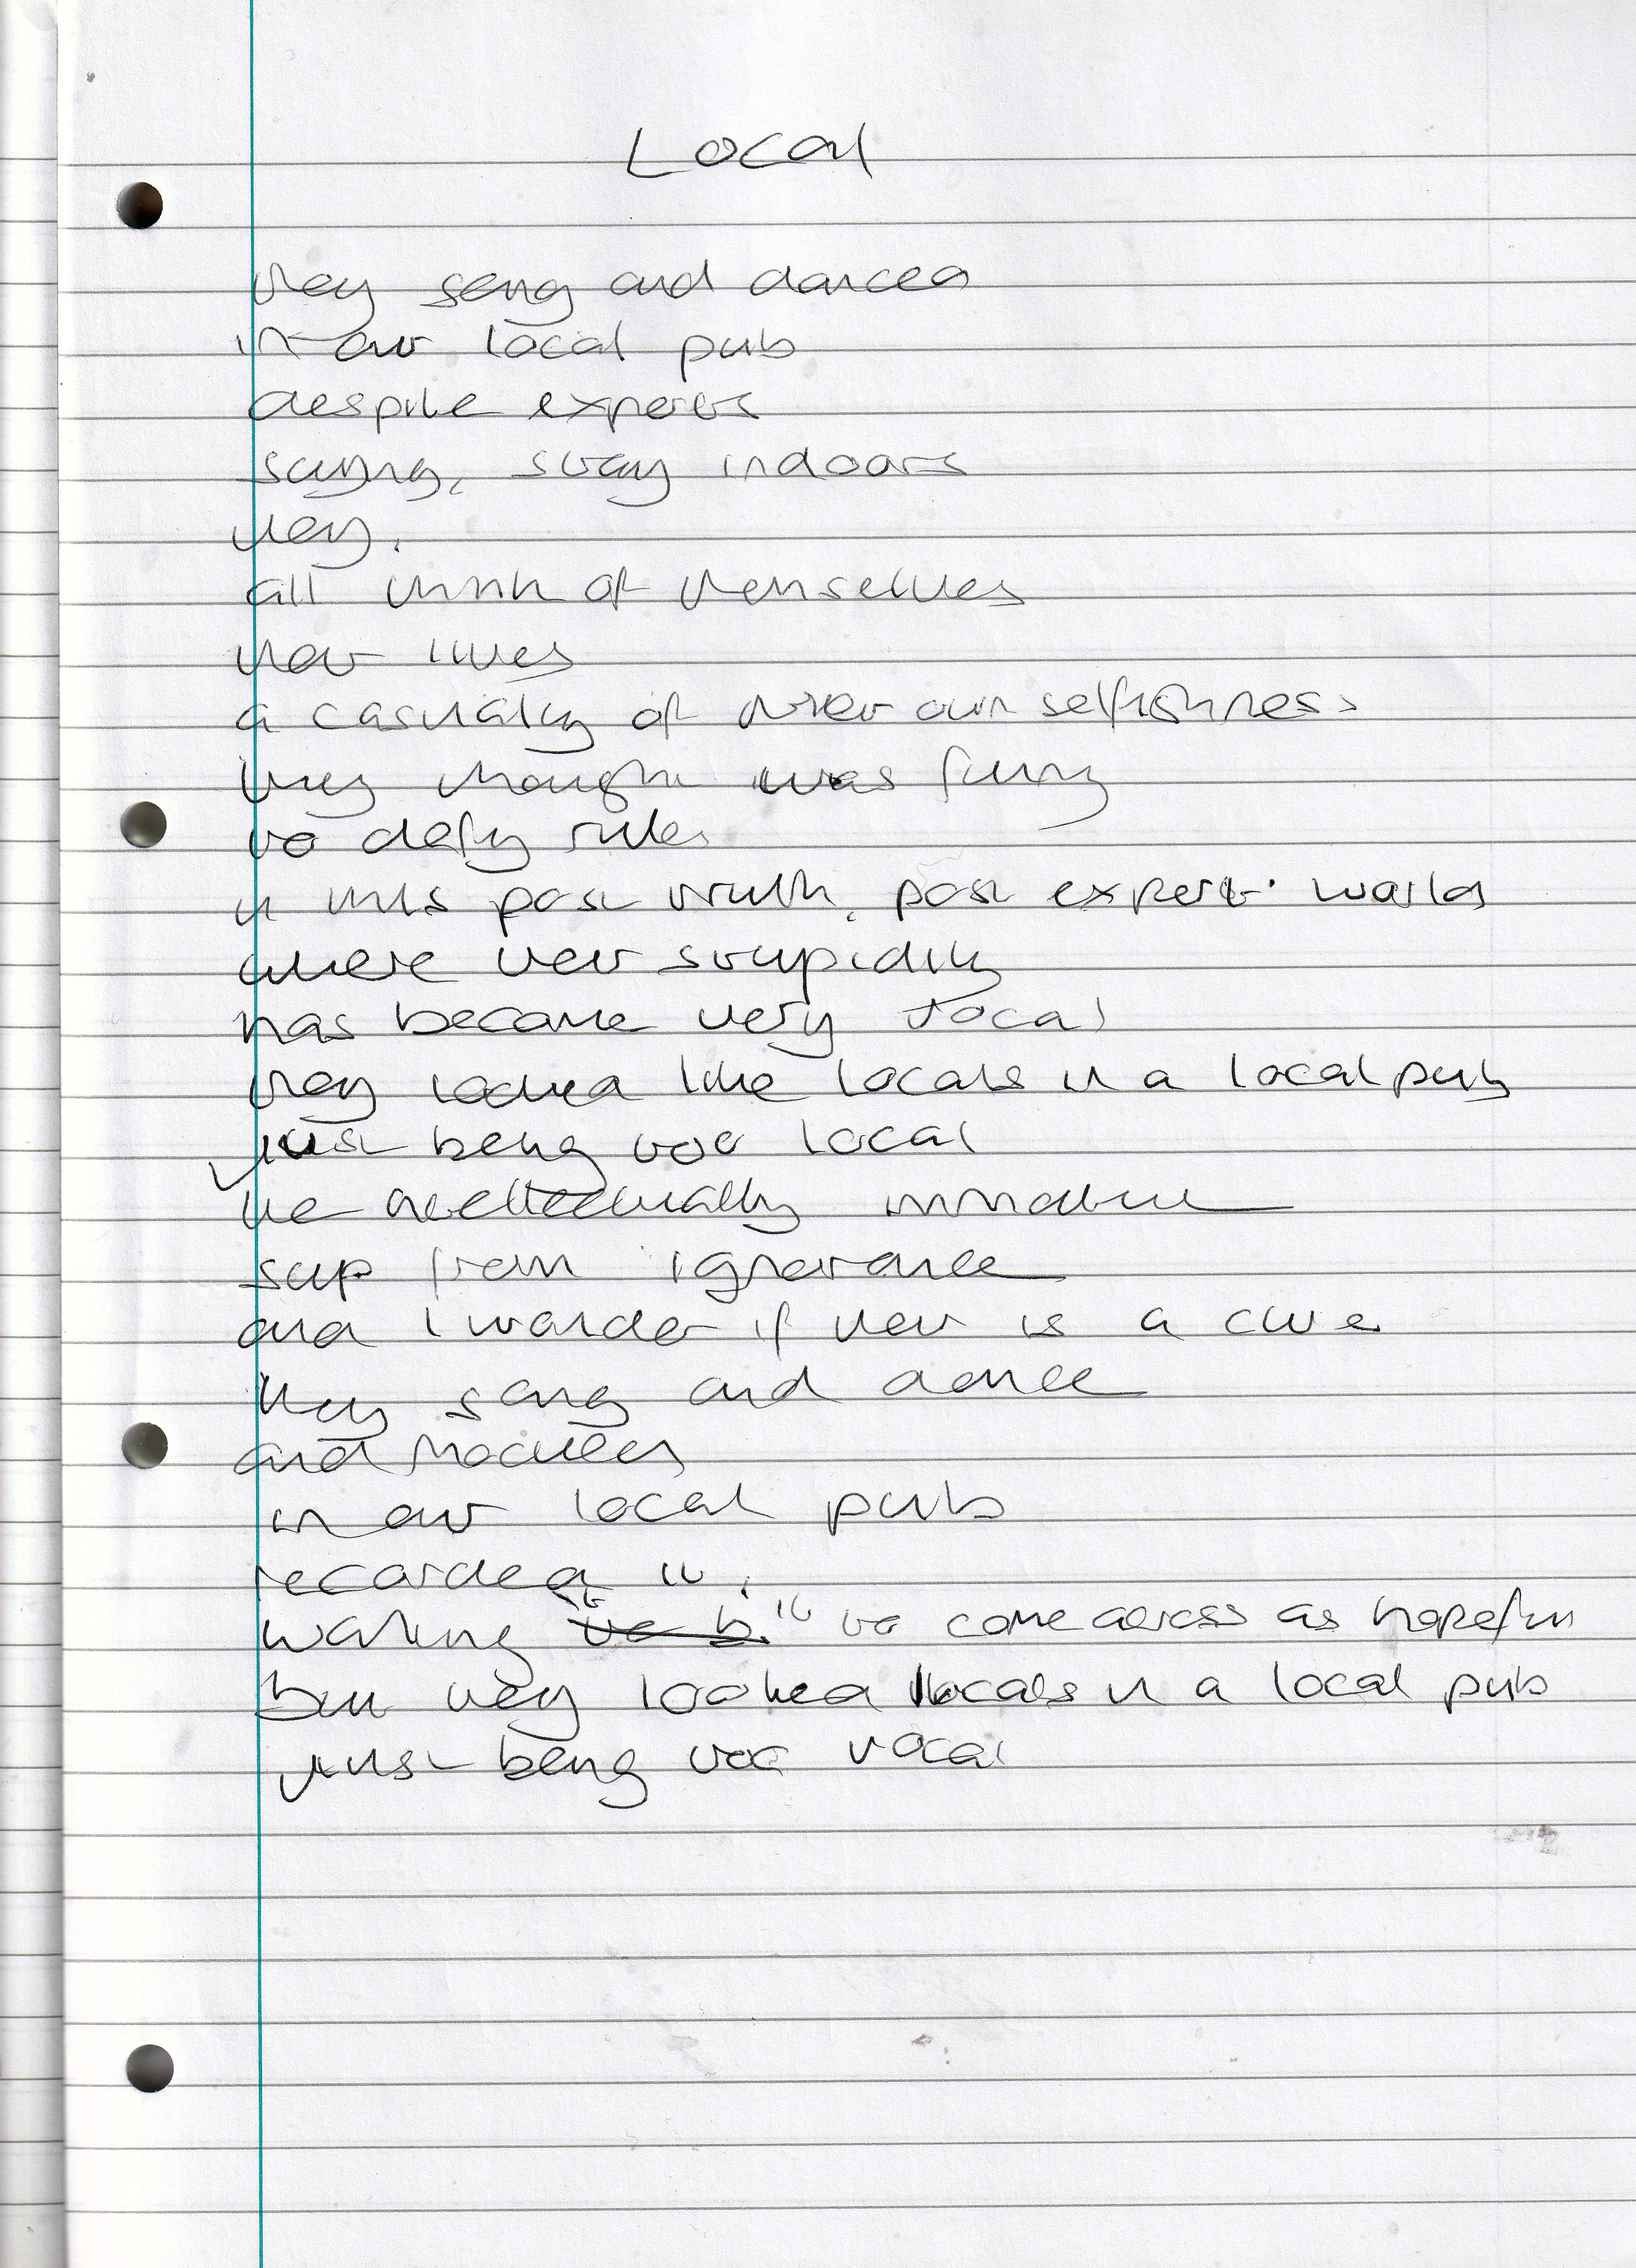 Local
they sang and danced
in our local pub
despite experts
saying, stay indoors
they.
all think of themselves
their lives
a casualty of their own selfishness
they thought it was funny
to defy rules
in this post truth, post expert world
where their stupidity
has become very local
they looked like locals in a local pub
just being too local
the intellectually immature
sup from ignorance
and I wonder if their is a cure
they sang and dance
and
in our local pub
recorded it.
wanting it to come across as hopeful
but they looked locals in a local pub
just being too vocal